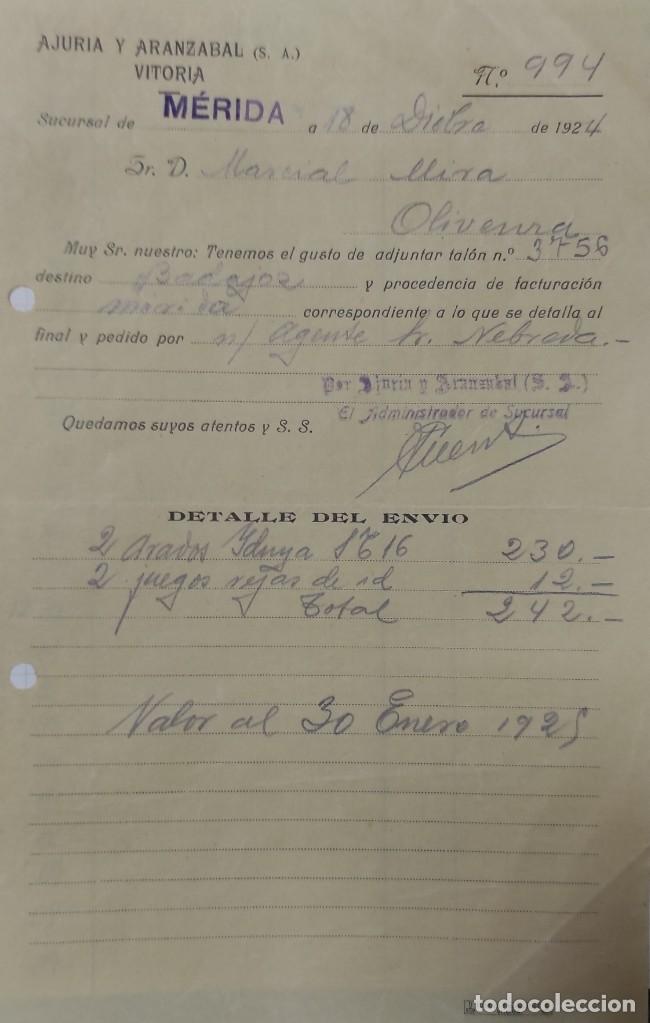 AJURIA Y ARANZABAL (S. A.)
VITORIA
N.º 994
Sucursal de MÉRIDA a 18 de Dicbre de 1924
Sr. D. Marcial Mira
Olivenza
Muy Sr. nuestro: Tenemos el gusto de adjuntar talón n.º 3756
destino Badajoz y procedencia de facturación
mérida correspondiente a lo que se detalla al
final y pedido por n/ Agente Sr. Nebreda.-
Por Ajuria y Aranzabal (S. A.)
El Administrador de Sucursal
Quedamos suyos atentos y S. S.
DETALLE DEL ENVIO
2 Arados 16 230.-
2 juegos rejas de id 12.-
Total 242.-
Valor al 30 Enero 1925
todocoleccion